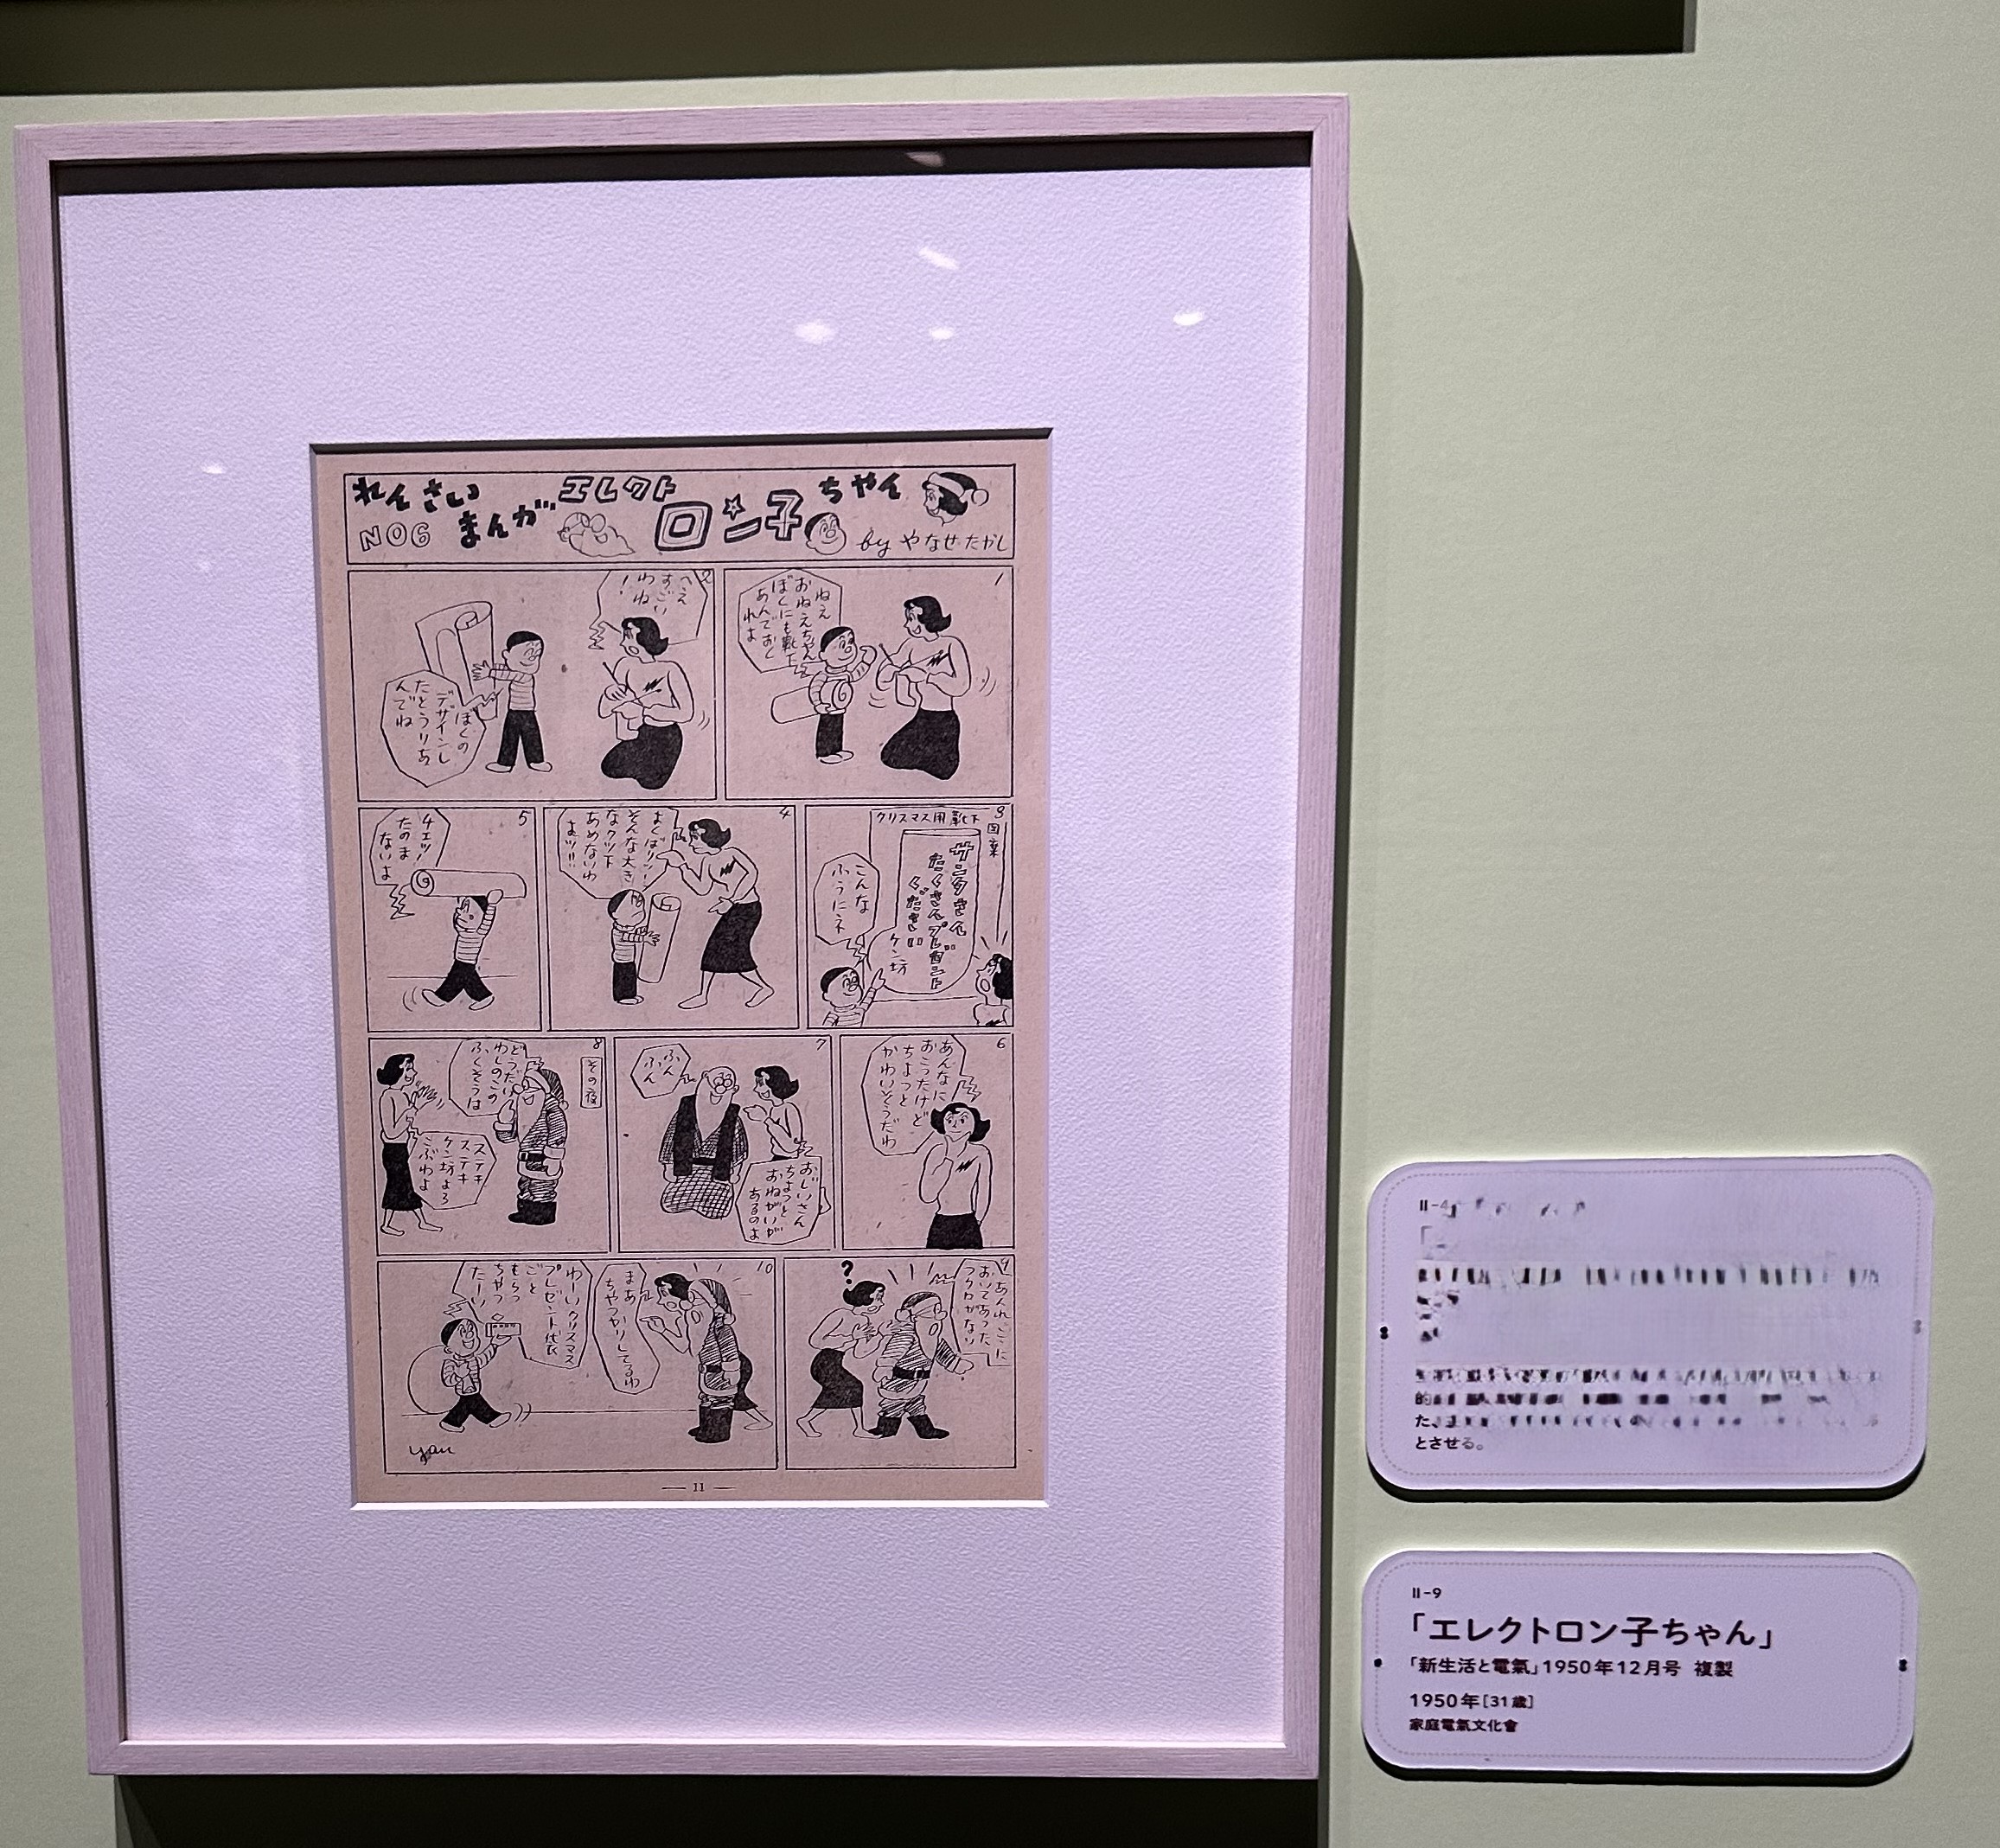 れんさい
まんが
エレクト
ロン子
ちゃん
NO6
by やなせ・たかし
1
ねえ
おねえちゃん
ぼくにも靴下
あんでおく
れよ
2
へえ
すごい
わね
!
ぼくの
デザインし
たとうりあ
んでね
3
クリスマス用靴下
図案
サンタさん
たくさんプレゼント
ください
ケン坊
こんな
ふうにネ
4
よくばりッ!
そんな大き
なクツ下
あめないわ
よッ!!
5
チェッ!
たのま
ないよ
6
あんなに
おこったけど
ちょっと
かわいそうだわ
7
おじいさん
ちょっと
おねがいが
あるのよ
ふん
ふん
8
その夜
どうだい
わしのこの
ふくそうは
ステキ
ステキ
ケン坊よろ
こぶわよ
9
あんれここに
おいてあった
フクロがない
?
10
まあ
ちゃっかりしてるわ
わーいクリスマス
プレゼント代表
ごと
もらっ
ちゃっ
たーい
yan
— 11 —
II-4
的
た、
とさせる。
II-9
「エレクトロン子ちゃん」
「新生活と電氣」1950年12月号 複製
1950年［31歳］
家庭電氣文化會